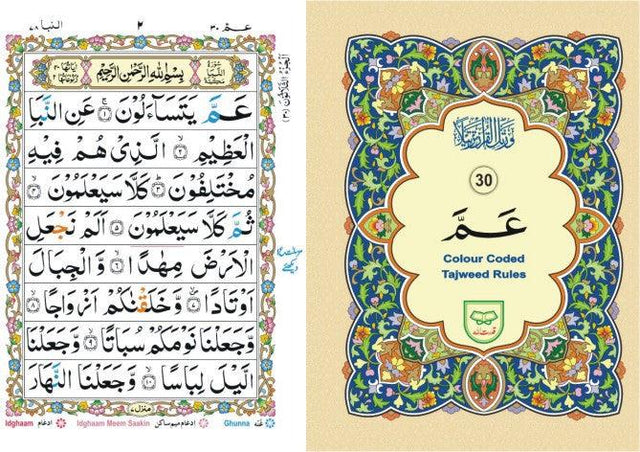 النبا ٧٨
٢
عـمّ ٣٠
سُورَةُ النَّبَا مَكِّيَّةٌ
بِسْمِ اللهِ الرَّحْمٰنِ الرَّحِيْمِ
عَمَّ يَتَسَآءَلُوْنَ ۝١ عَنِ النَّبَاِ
الْعَظِيْمِ ۝٢ الَّذِىْ هُمْ فِيْهِ
مُخْتَلِفُوْنَ ۝٣ كَلَّا سَيَعْلَمُوْنَ ۝٤
ثُمَّ كَلَّا سَيَعْلَمُوْنَ ۝٥ اَلَمْ نَجْعَلِ
الْاَرْضَ مِهٰدًا ۝٦ وَّالْجِبَالَ
اَوْتَادًا ۝٧ وَّخَلَقْنٰكُمْ اَزْوَاجًا ۝٨
وَّجَعَلْنَا نَوْمَكُمْ سُبَاتًا ۝٩ وَّجَعَلْنَا
الَّيْلَ لِبَاسًا ۝١٠ وَّجَعَلْنَا النَّهَارَ
الجزء الثلاثون (٣٠)
منزل ٧
Idghaam ادغام
Idghaam Meem Saakin ادغام میم ساکن
Ghunna غنّه
وَرَتِّلِ الْقُرْاٰنَ تَرْتِيْلًا
30
عَـمَّ
Colour Coded
Tajweed Rules